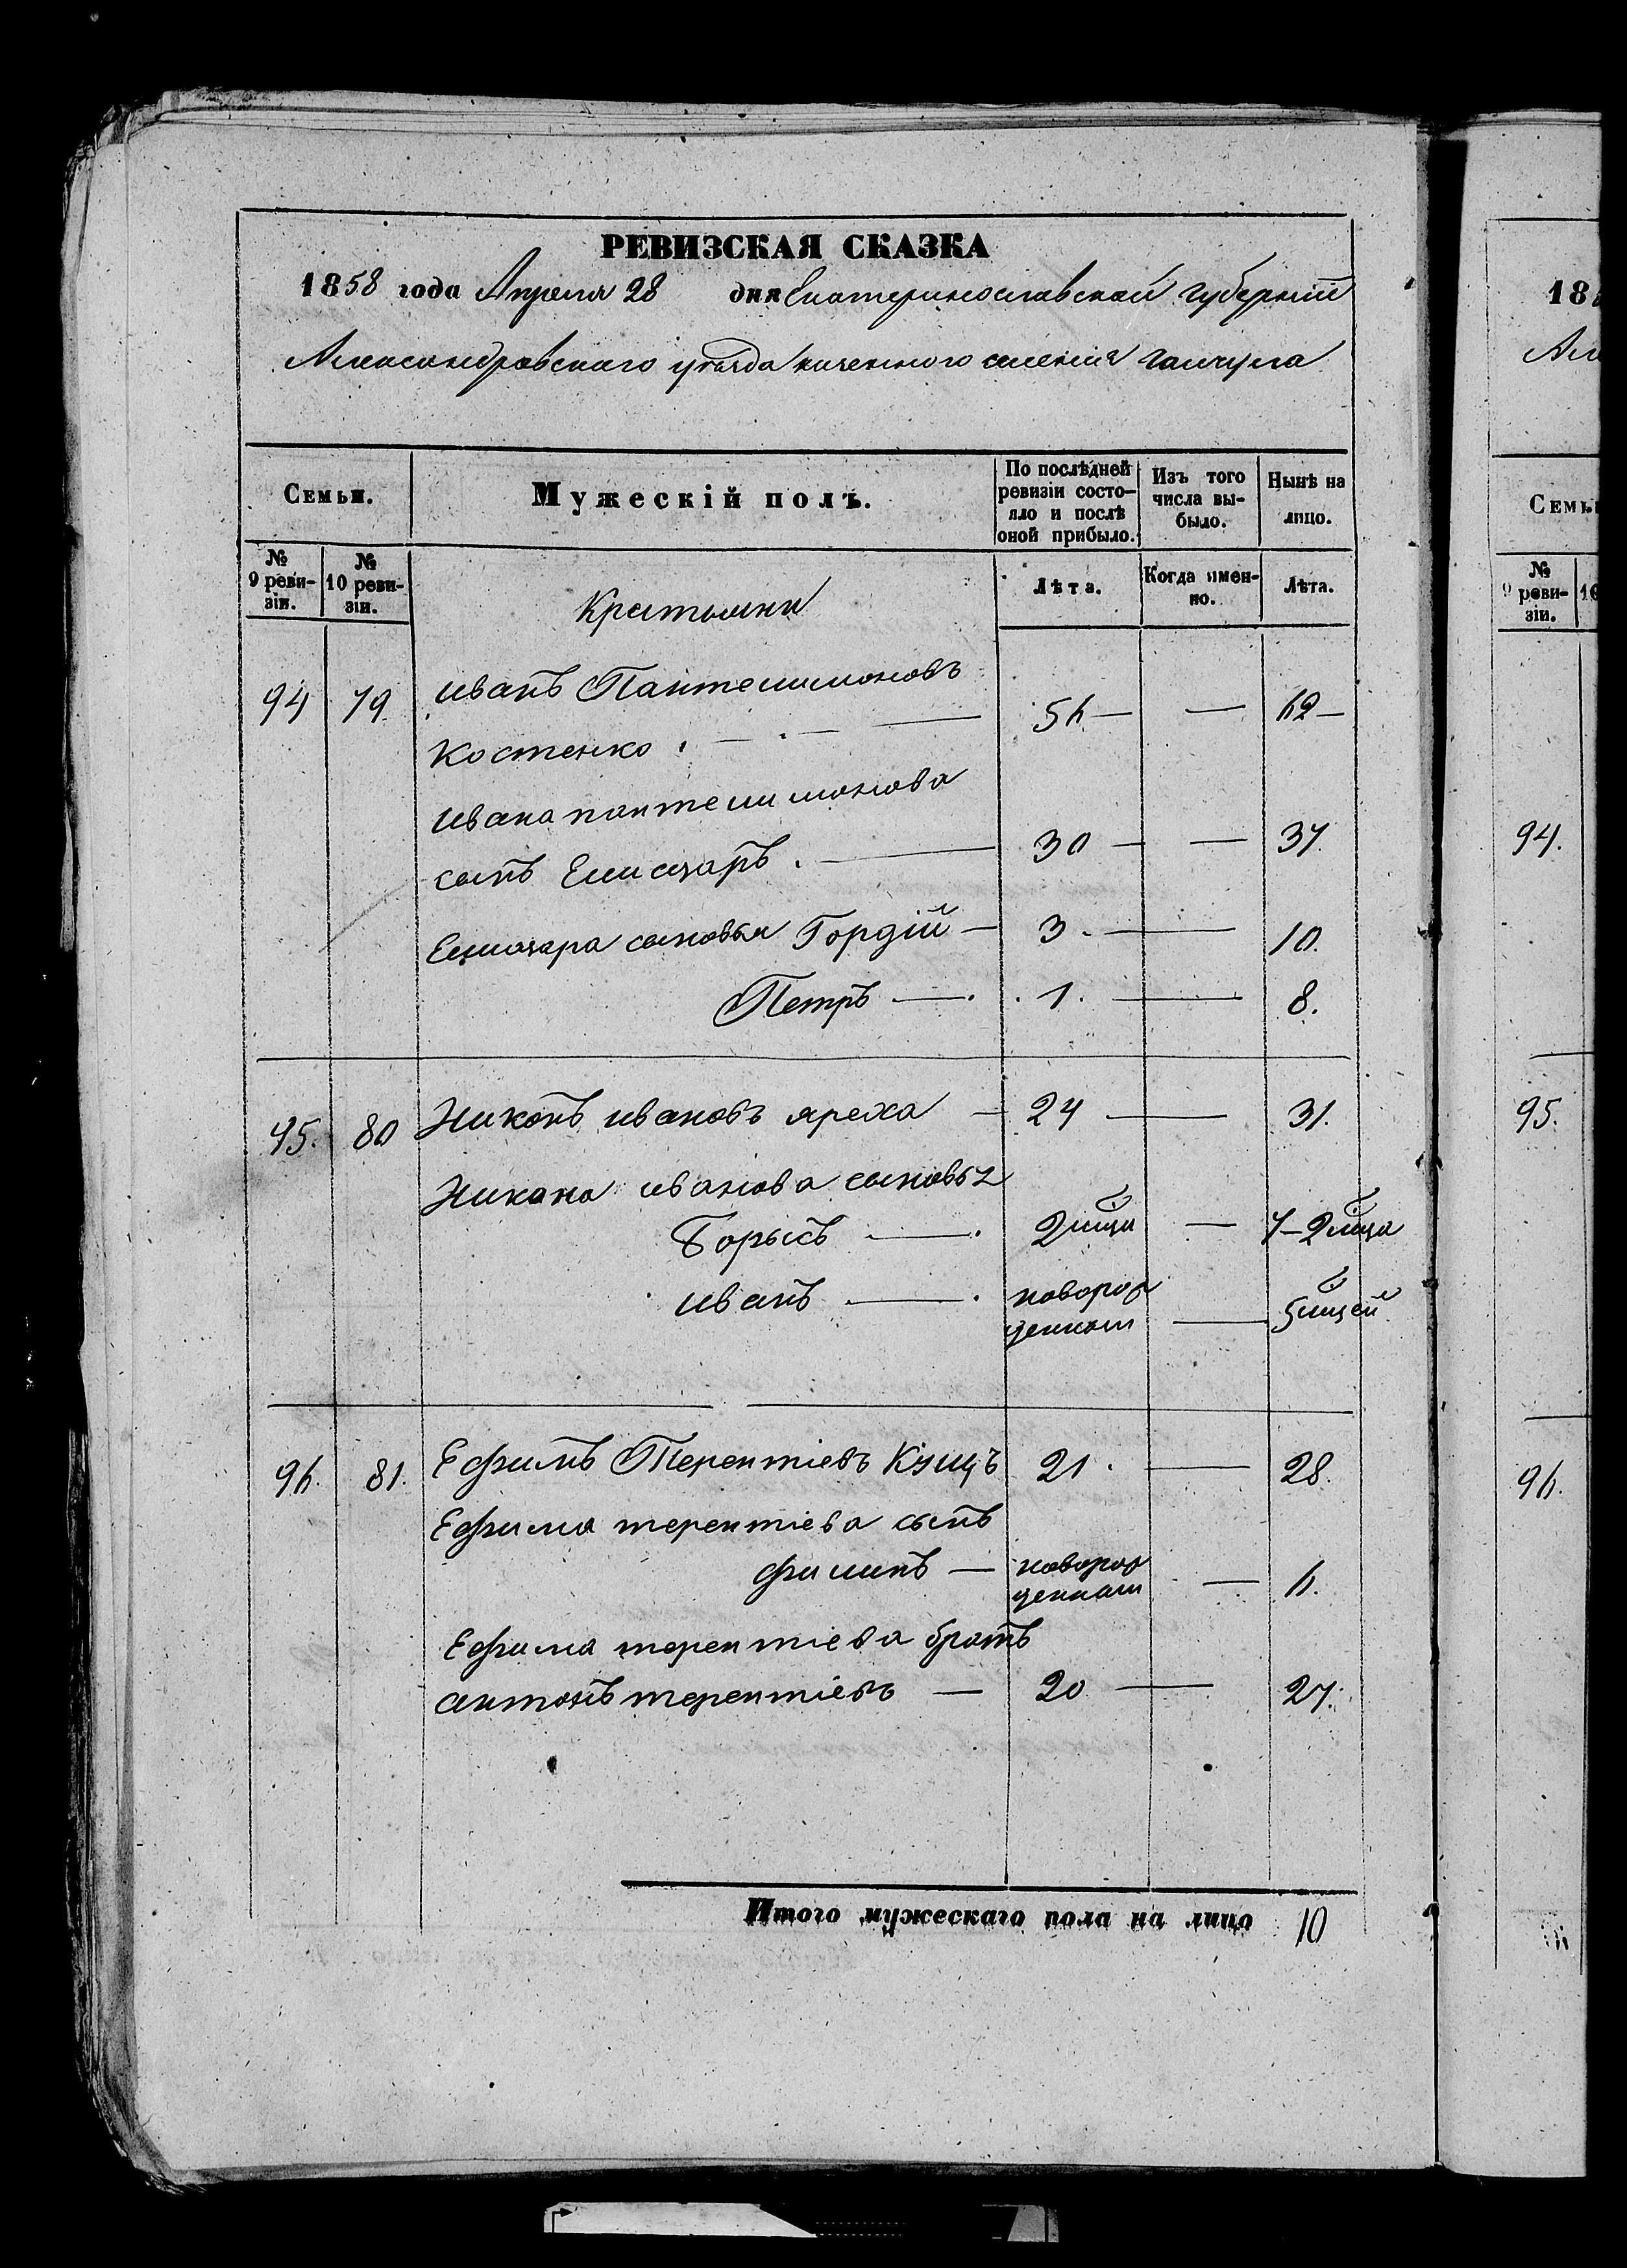 РЕВИЗСКАЯ СКАЗКА
1858 года Апреля 28 дня Екатеринославской губерніи
Александровского уѣзда казенного селенія Гайчула
Семьи.
Мужескій полъ.
По послѣдней ревизіи состо-
яло и послѣ
оной прибыло.
Изъ того
числа вы-
было.
Нынѣ на
лицо.
№
9 реви-
зіи.
№
10 реви-
зіи.
Крестьяни
Лѣта.
Когда имен-
но.
Лѣта.
94 79. иванъ Пантелимоновъ
Костенко . — . — 56 — — 62 —
ивана пантелимонова
сынъ Елисчаръ . — 30 — — 37.
Елисчара сыновья Гордій — 3. — 10.
Петръ — . 1. — 8.
95. 80 Никонъ ивановъ яреха — 24 — 31.
Никона иванова сыновья
Борысъ — . 2 мца — 7-2 мца
иванъ — . новорож
денный — 5 мцей
96. 81. Ефимъ Терентіевъ Кущъ 21. — 28.
Ефима терентіева сынъ
филипъ — новорож
денный — 6.
Ефима терентіева братъ
антонъ терентіевъ — 20 — 27.
Итого мужескаго пола на лицо 10
18
Ал
Семьи
№
9 реви-
зіи.
10
94.
95.
96.